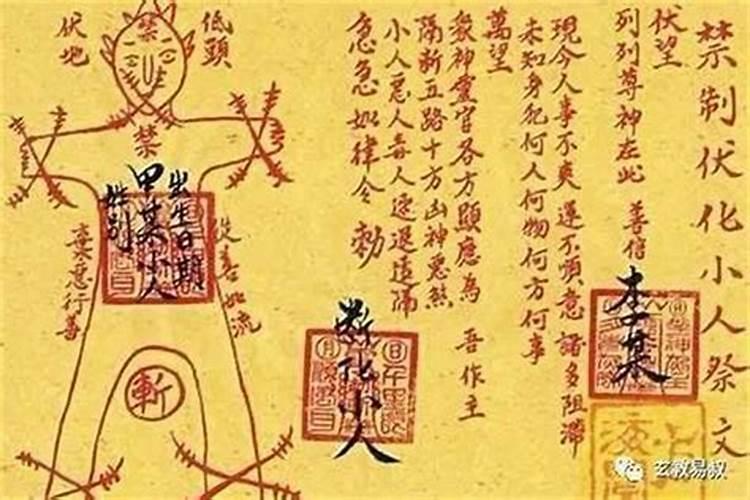 禁制伏化小人祭文
伏望
列列尊神在此 善信
李某
現今人事不爽運不順意諸多阻滯
未知身犯何人何物何方何事
萬望
衆神靈官各方顯應為 吾作主
隔斬五路十方凶神惡煞
小人惡人毒人速退遠隔
急急如律令 勅
斷化小人
低頭
伏地
禁
禁
出生日期
甲某小人
姓別
從善如流
棄惡行善
斬
玄教易叔